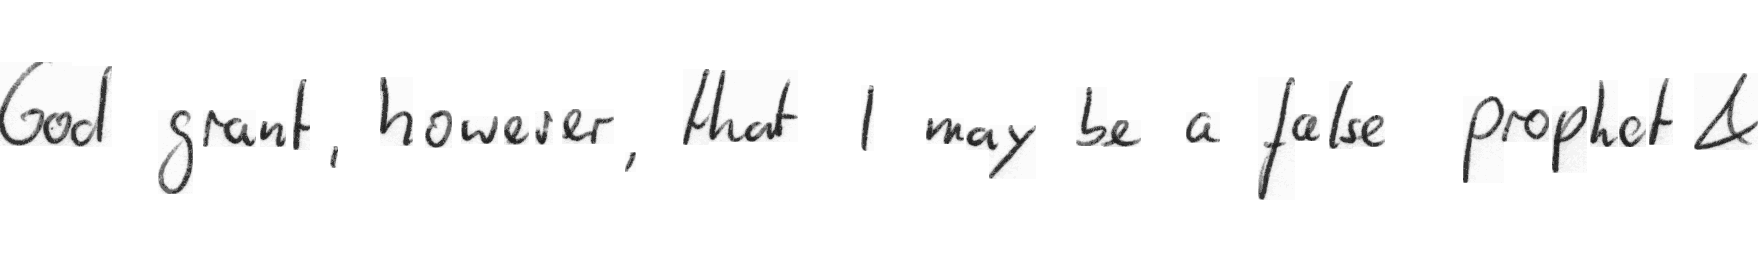 God grant, however, that I may be a false prophet &